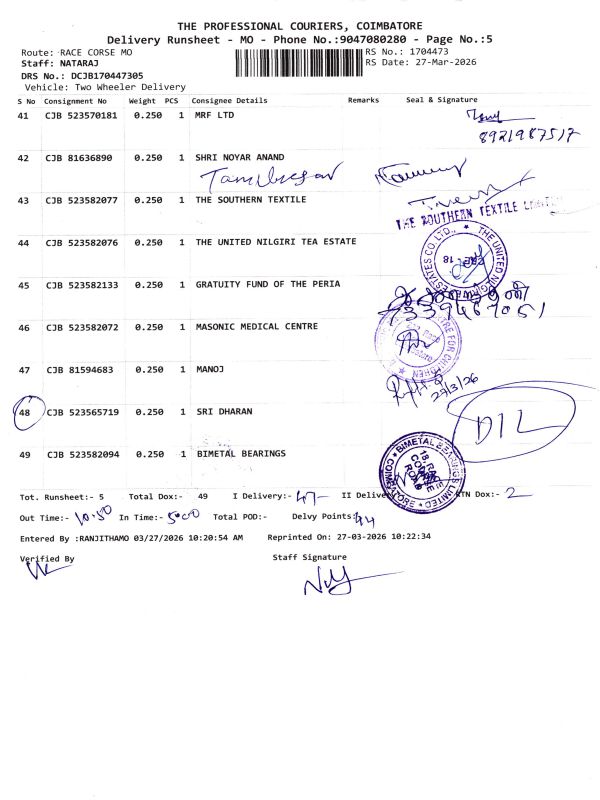 THE PROFESSIONAL COURIERS, COIMBATORE
Delivery Runsheet - MO - Phone No.:9047080280 - Page No.:5
Route: RACE CORSE MO
RS No.: 1704473
Staff: NATARAJ
RS Date: 27-Mar-2026
DRS No.: DCJB170447305
Vehicle: Two Wheeler Delivery
S No Consignment No Weight PCS Consignee Details Remarks Seal & Signature
41 CJB 523570181 0.250 1 MRF LTD
8921987517
42 CJB 81636890 0.250 1 SHRI NOYAR ANAND
43 CJB 523582077 0.250 1 THE SOUTHERN TEXTILE
THE SOUTHERN TEXTILE LIMITED
44 CJB 523582076 0.250 1 THE UNITED NILGIRI TEA ESTATE
45 CJB 523582133 0.250 1 GRATUITY FUND OF THE PERIA
7339467051
46 CJB 523582072 0.250 1 MASONIC MEDICAL CENTRE
47 CJB 81594683 0.250 1 MANOJ
27/3/26
48 CJB 523565719 0.250 1 SRI DHARAN
D/L
49 CJB 523582094 0.250 1 BIMETAL BEARINGS
BIMETAL BEARINGS LIMITED COIMBATORE
Tot. Runsheet:- 5 Total Dox:- 49 I Delivery:- 47 II Delivery RTN Dox:- 2
Out Time:- 10:50 In Time:- 5:00 Total POD:- Delvy Points:- 44
Entered By :RANJITHAMO 03/27/2026 10:20:54 AM Reprinted On: 27-03-2026 10:22:34
Verified By Staff Signature